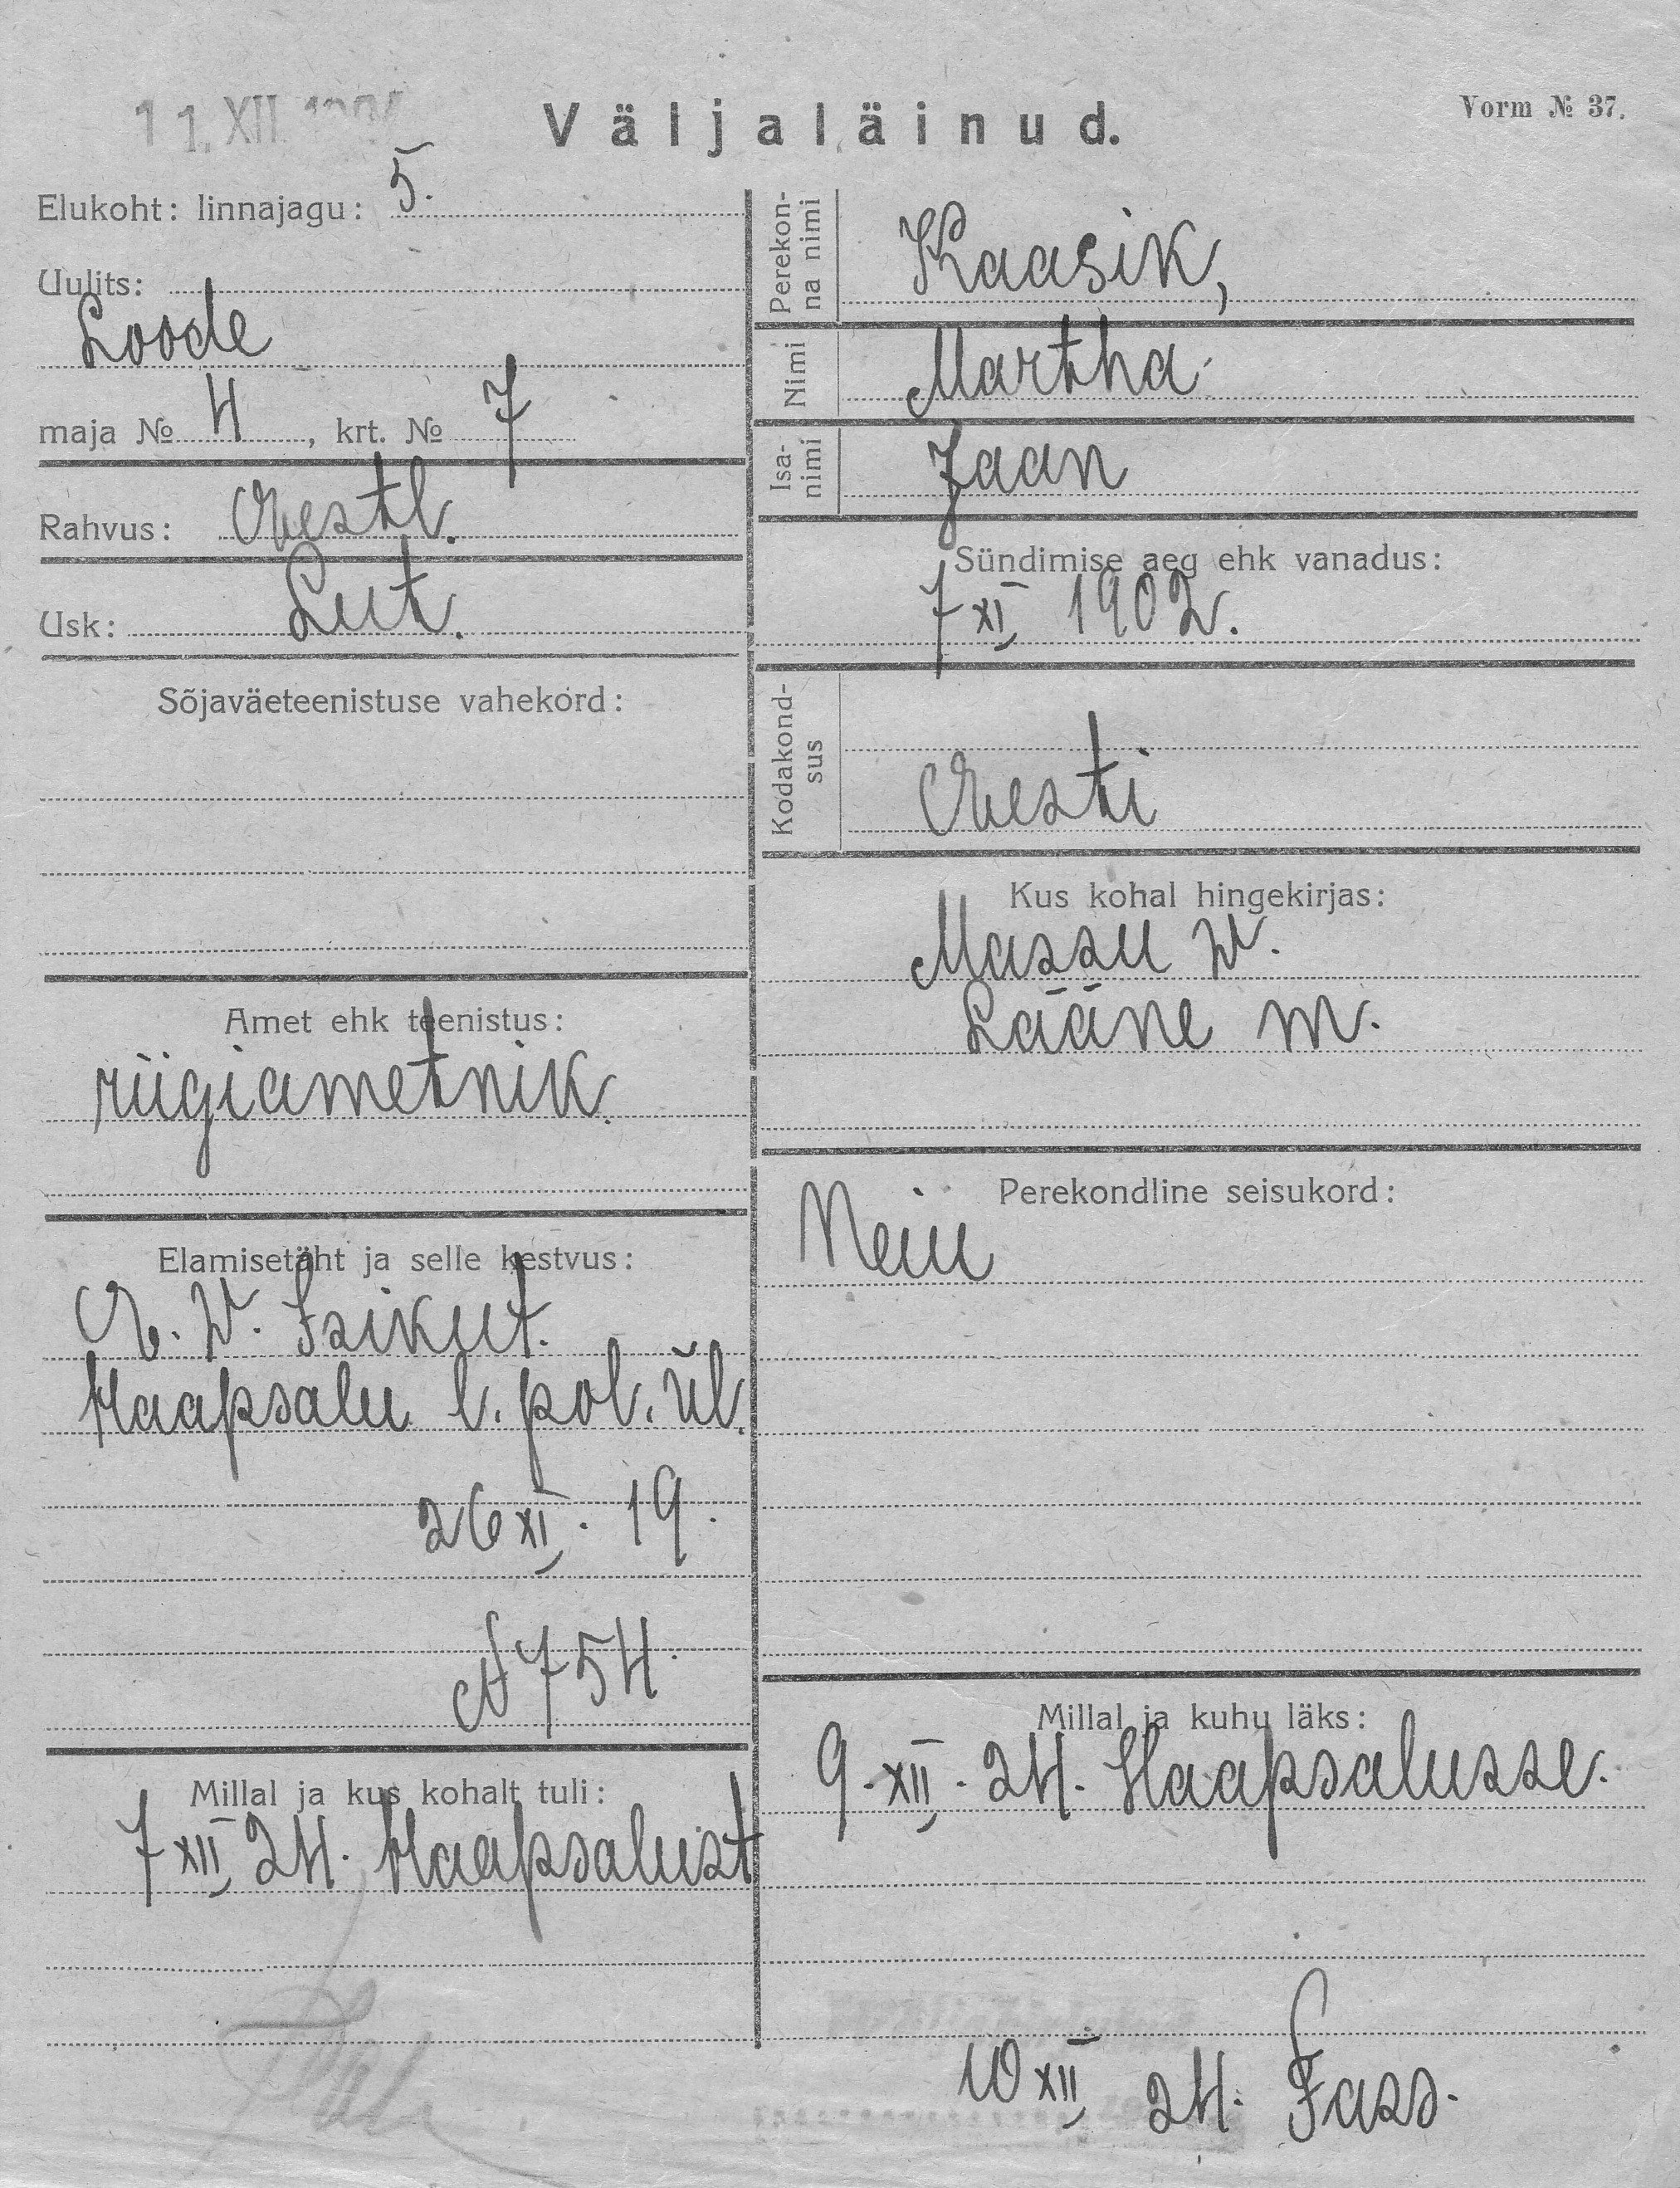 11. XII
Väljaläinud.
Vorm № 37.
Elukoht: linnajagu: 5.
Uulits:
Loode
maja № 4, krt. № 7
Rahvus: Eestl.
Usk: Lut.
Sõjaväeteenistuse vahekord:
Amet ehk teenistus:
riigiametnik.
Elamisetäht ja selle kestvus:
E. W. Isikut.
Haapsalu l. pol. ül.
26 XI. 19.
№ 754.
Millal ja kus kohalt tuli:
7 XII 24. Haapsalust
Perekonna nimi
Kaasik,
Nimi
Martha.
Isanimi
Jaan
Sündimise aeg ehk vanadus:
7 XI 1902.
Kodakondsus
Eesti
Kus kohal hingekirjas:
Massu W.
Lääne m.
Perekondline seisukord:
Neiu
Millal ja kuhu läks:
9. XII. 24. Haapsalusse.
10 XII 24.